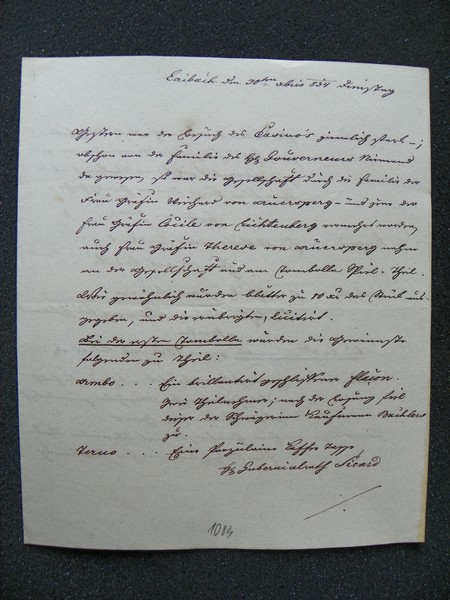 Laibach den 30ten xbris 834 Dienstag
Gestern war der Besuch des Casino's ziemlich stark –;
obschon von der Familie des H: Gouverneurs Niemand
da gewesen, ist war die Gesellschaft durch die Familie der
Frau Gräfin Weichard von Auersperg – und jene der
Frau Gräfin Cécile von Lichtenberg vermehrt worden,
auch Frau Gräfin Therese von Auersperg nahm
an der Gesellschaft und am Tombolla Spiel Theil.
Wie gewöhnlich wurden blätter zu 10 x des Stück aus-
gegeben, und die erübrigten, licitirt.
Bei der ersten Tombolla wurden die Gewinnste
folgenden zu Theil:
Ambo . . . Ein brillantirt geschliffener Flacon.
Zwei Theilnehmer; nach der Losung fiel
dieser der Schwägerin Kaufmann
zu.
Terno . . . Eine Porzulaine Caffe Tasse
H: Gubernialrath Sicard
1084